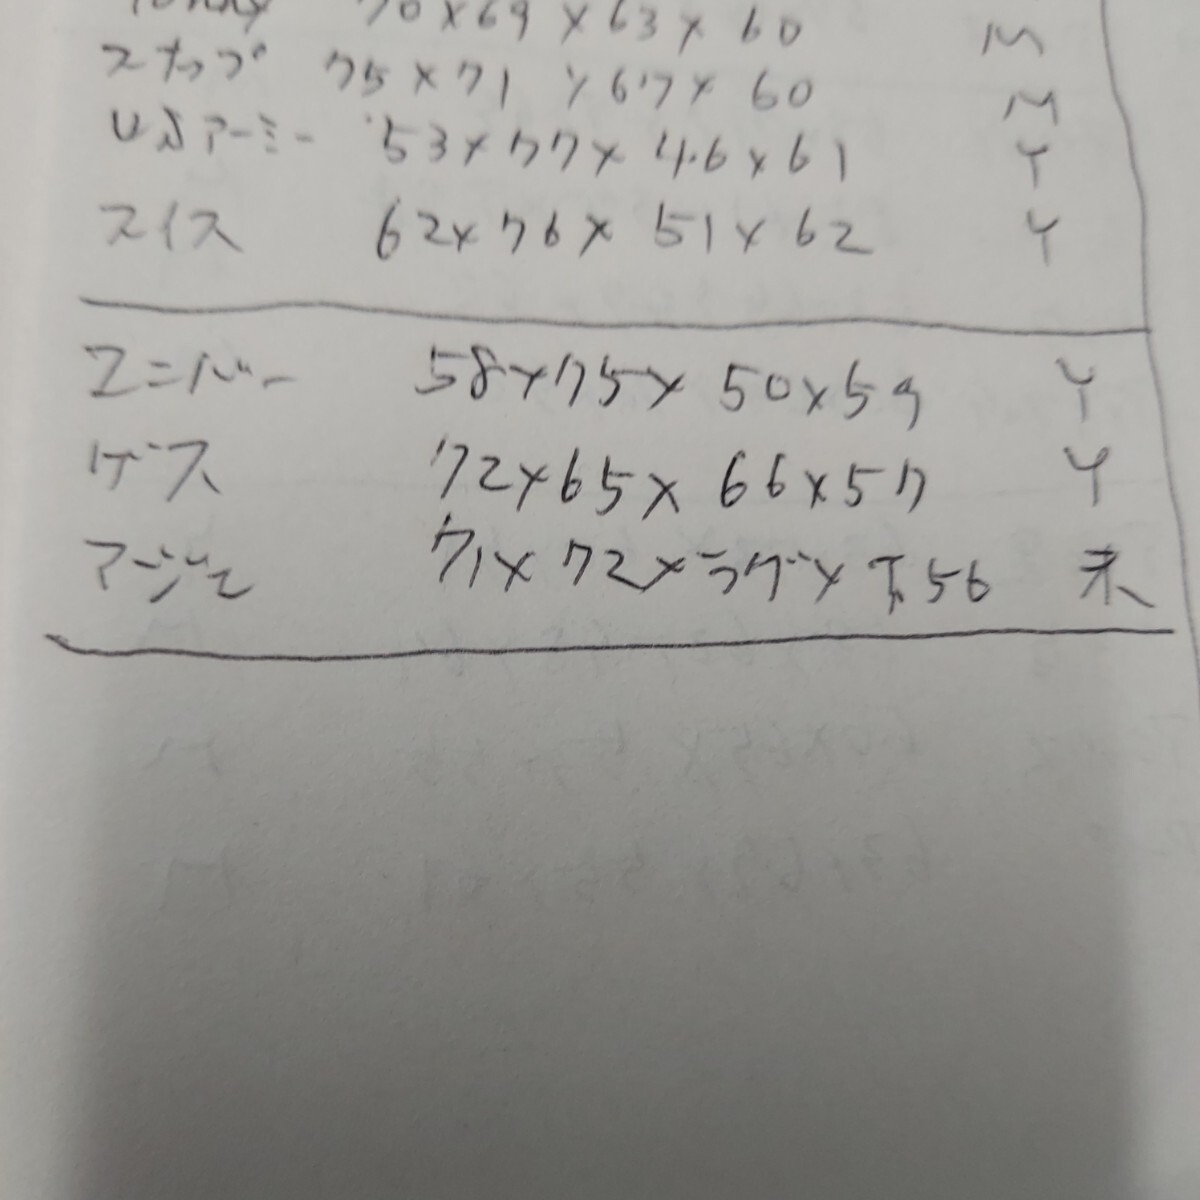 70×69×63×60 M
スナップ 75×71×67×60 M
USアーミー 53×77×46×61 Y
スイス 62×76×51×62 Y
ユニバー 58×75×50×59 Y
ゲス 72×65×66×57 Y
マージェ 71×72×ラグ×下56 未